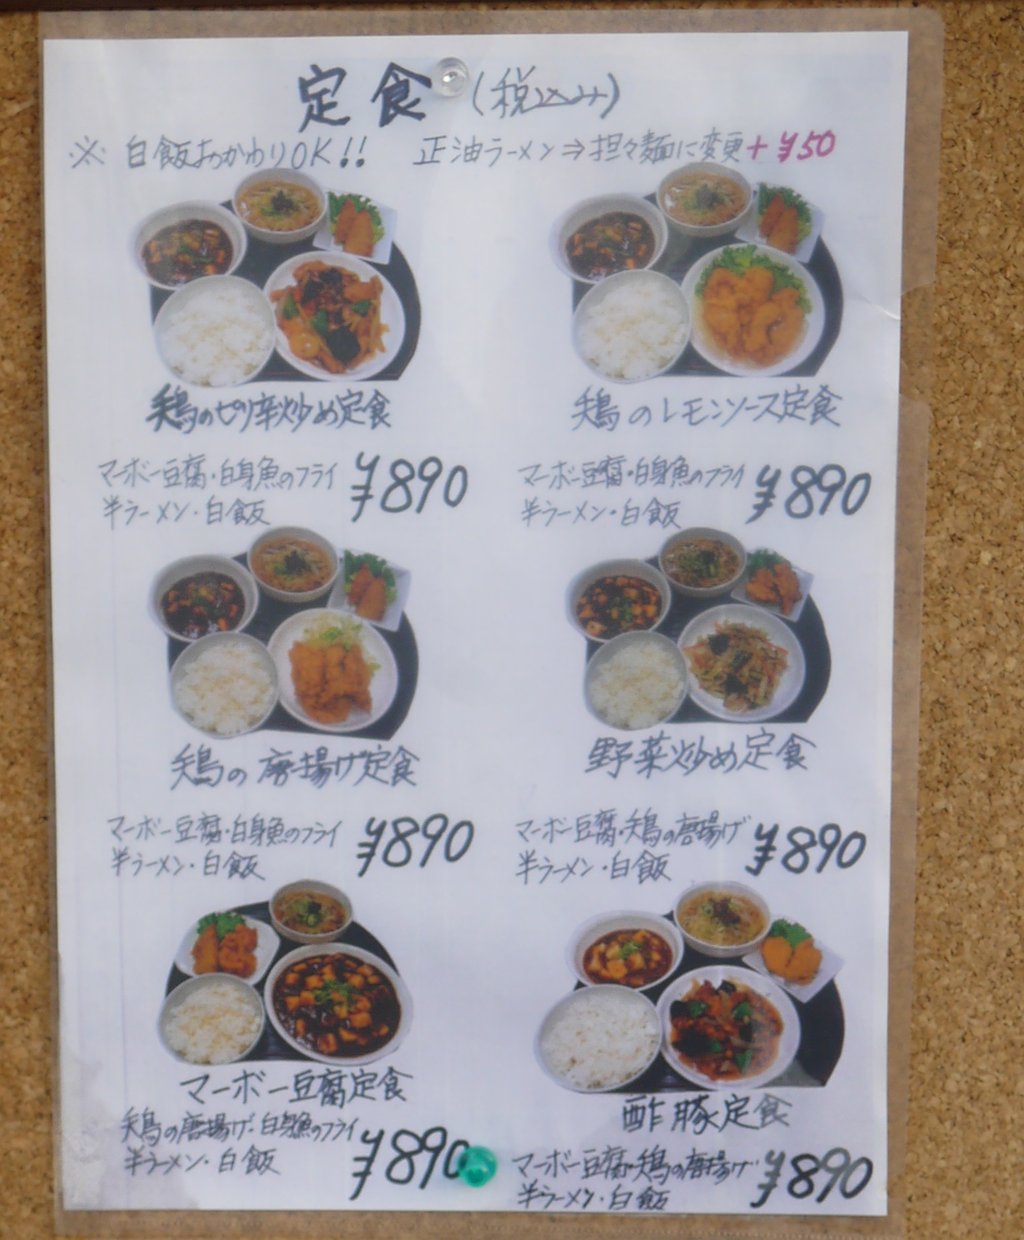 定食(税込み)
※ 白飯おかわりOK!! 正油ラーメン⇒担々麺に変更+¥50
鶏のピリ辛炒め定食
マーボー豆腐・白身魚のフライ
半ラーメン・白飯
¥890
鶏のレモンソース定食
マーボー豆腐・白身魚のフライ
半ラーメン・白飯
¥890
鶏の唐揚げ定食
マーボー豆腐・白身魚のフライ
半ラーメン・白飯
¥890
野菜炒め定食
マーボー豆腐・鶏の唐揚げ
半ラーメン・白飯
¥890
マーボー豆腐定食
鶏の唐揚げ・白身魚のフライ
半ラーメン・白飯
¥890
酢豚定食
マーボー豆腐・鶏の唐揚げ
半ラーメン・白飯
¥890